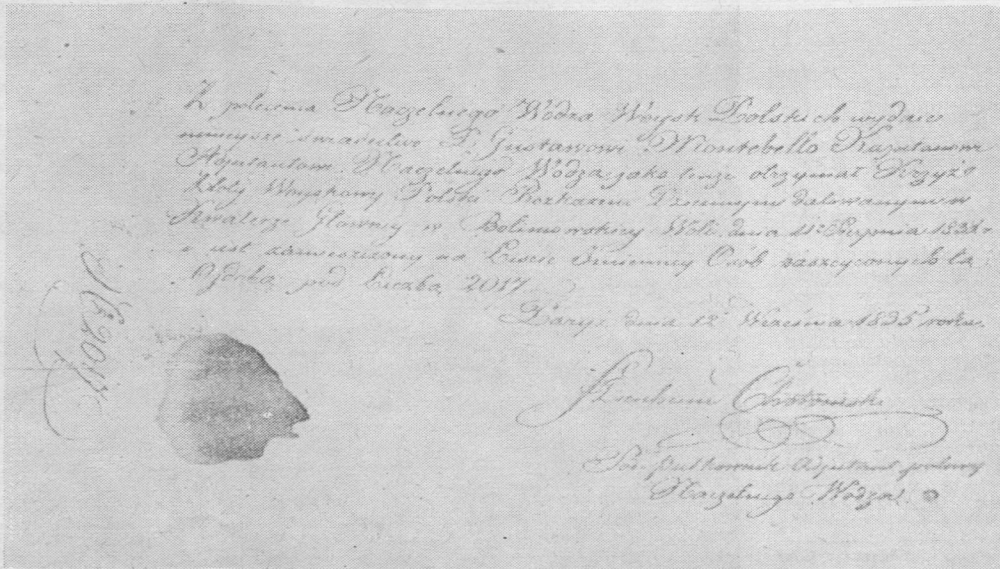 Z polecenia Naczelnego Wodza Woysk Polskich wydaie
ninieysze świadectwo P. Gustawowi Montebello Kapitanowi
Adjutantowi Naczelnego Wodza jako tenże otrzymał Krzyż
Złoty Woyskowy Polski Rozkazem Dziennym datowanym w
Kwaterze Głowney w Bolimowskiey Woli dnia 11º Sierpnia 1831 r
i iest zamieszczony na Liscie Imienney Osób zaszczyconych tą
Ozdobą pod liczbą 2017
Paryż dnia 12 Września 1835 roku.
Chotomski
Pod-pułkownik Adjutant polowy
Naczelnego Wodza
№ 2017